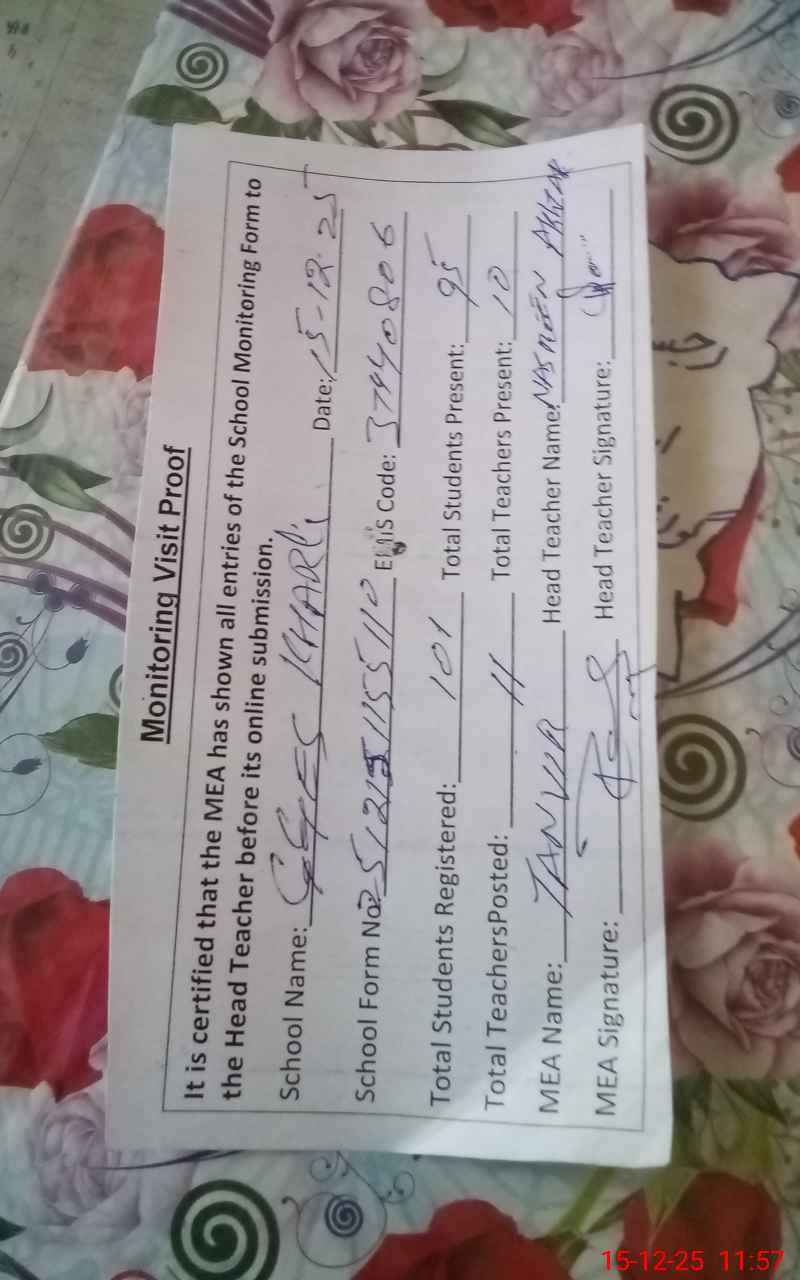 Monitoring Visit Proof
It is certified that the MEA has shown all entries of the School Monitoring Form to
the Head Teacher before its online submission.
School Name: GGES KHARLI Date: 15-12-25
School Form No: 2512151155110 Emis Code: 37440806
Total Students Registered: 101 Total Students Present: 95
Total TeachersPosted: 11 Total Teachers Present: 10
MEA Name: TANVIR Head Teacher Name: NASREEN AKHTAR
MEA Signature: Head Teacher Signature:
15-12-25 11:57